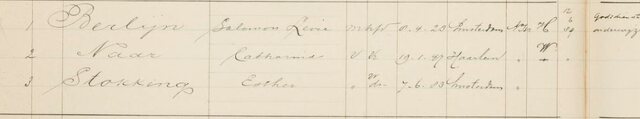 1 Berlijn Salomon Levie m hfd 8.4.23 Amsterdam N. Isr H Godsdienst
onderwijz
2 Naar Catharina v Vr 19.1.47 Haarlem " " W
3 Stokking Esther " dr 7.6.83 Amsterdam "